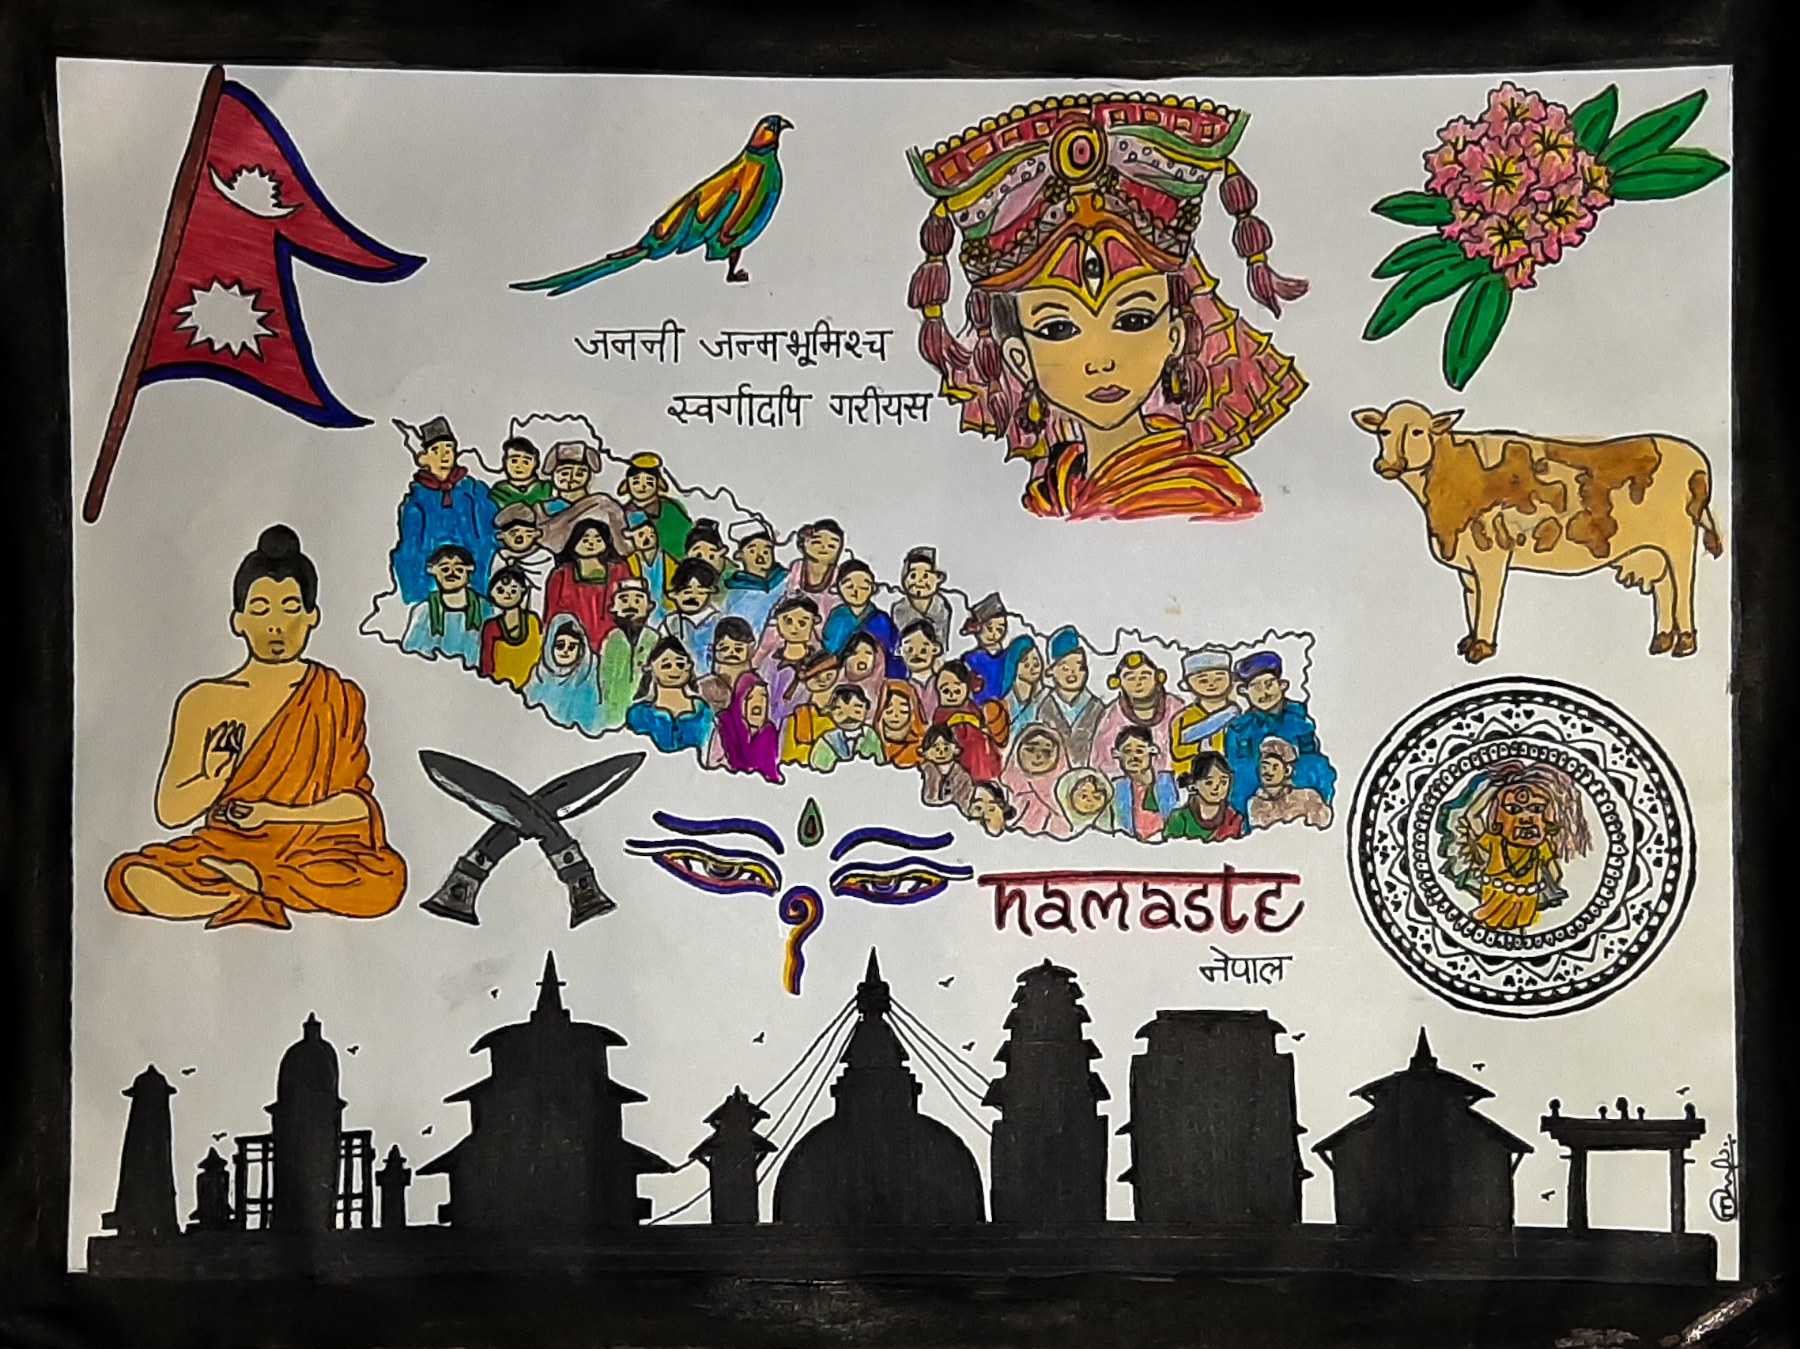 जननी जन्मभूमिश्च
स्वर्गादपि गरीयस
namaste
नेपाल